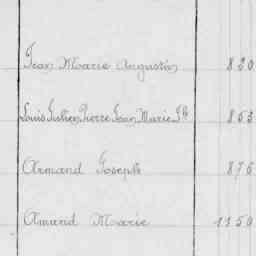 Jean Marie Augustin 820
Louis Jullien Pierre Jean Marie Jh 853
Armand Joseph 876
Amand Marie 1150